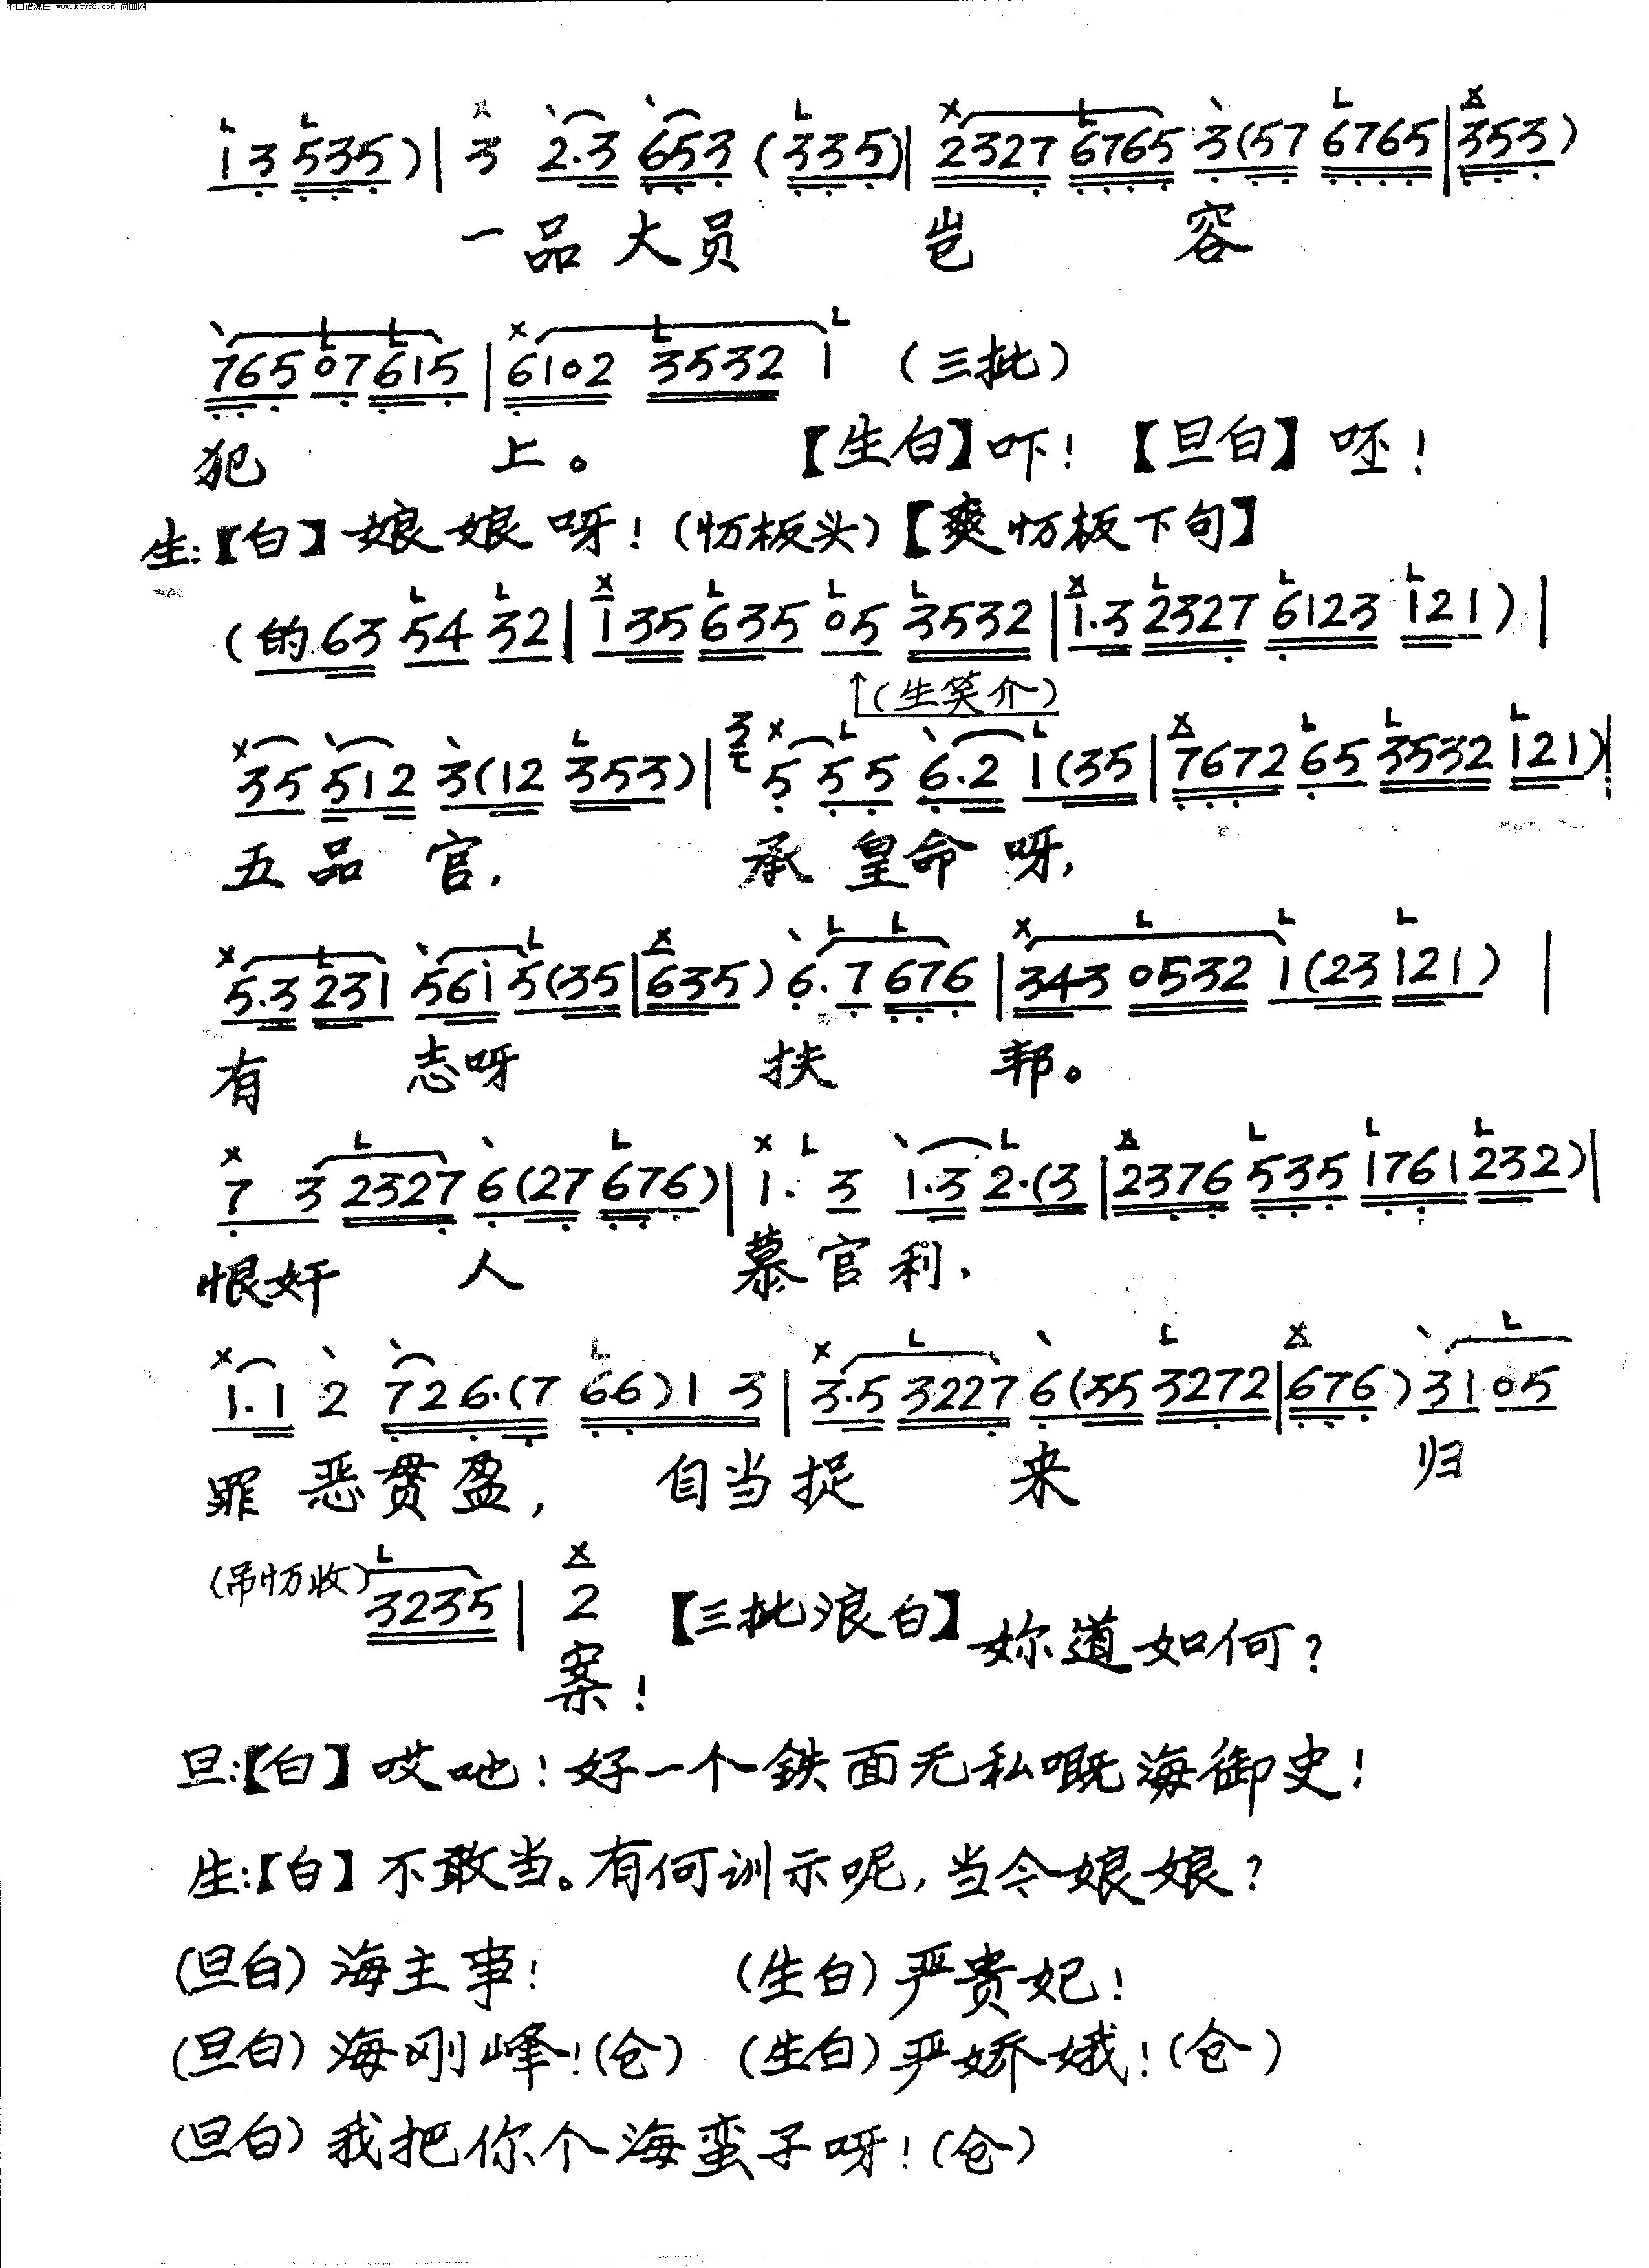 本曲谱源自 www.ktvc8.com 词曲网
1 3 5 3 5 ) | 3 2·3 6 5 3 ( 3 3 5 ) | 2 3 2 7 6 7 6 5 3 ( 5 7 6 7 6 5 | 3 5 3 )
一品大员 岂 容
7 6 5 0 7 6 1 5 | 6 1 0 2 3 5 3 2 1 (三批)
犯 上。 【生白】吓! 【旦白】呸!
生:【白】娘娘呀!(忉板头)【爽忉板下句】
(的 6 3 5 4 3 2 | 1 3 5 6 3 5 0 5 3 5 3 2 | 1·3 2 3 2 7 6 1 2 3 1 2 1 ) |
↑(生笑介)
3 5 5 1 2 3 ( 1 2 3 5 3 ) | 5 5 5 6·2 1 ( 3 5 | 7 6 7 2 6 5 3 5 3 2 1 2 1 ) |
五品官, 承皇命呀,
5·3 2 3 1 5 6 i 5 ( 3 5 | 6 3 5 ) 6·7 6 7 6 | 3 4 3 0 5 3 2 1 ( 2 3 1 2 1 ) |
有 志呀 扶 邦。
7 3 2 3 2 7 6 ( 2 7 6 7 6 ) | 1· 3 1·3 2·( 3 | 2 3 7 6 5 3 5 1 7 6 1 2 3 2 ) |
恨奸 人 慕官利,
1·1 2 7 2 6·( 7 6 6 ) 1 3 | 3·5 3 2 2 7 6 ( 3 5 3 2 7 2 | 6 7 6 ) 3 1 0 5
罪恶贯盈, 自当捉 来 归
(吊忉收) 3 2 3 5 | 2 【三批浪白】妳道如何?
案!
旦:【白】哎吔!好一个铁面无私嘅海御史!
生:【白】不敢当。有何训示呢,当今娘娘?
(旦白)海主事! (生白)严贵妃!
(旦白)海刚峰!(仓) (生白)严娇娥!(仓)
(旦白)我把你个海蛮子呀!(仓)